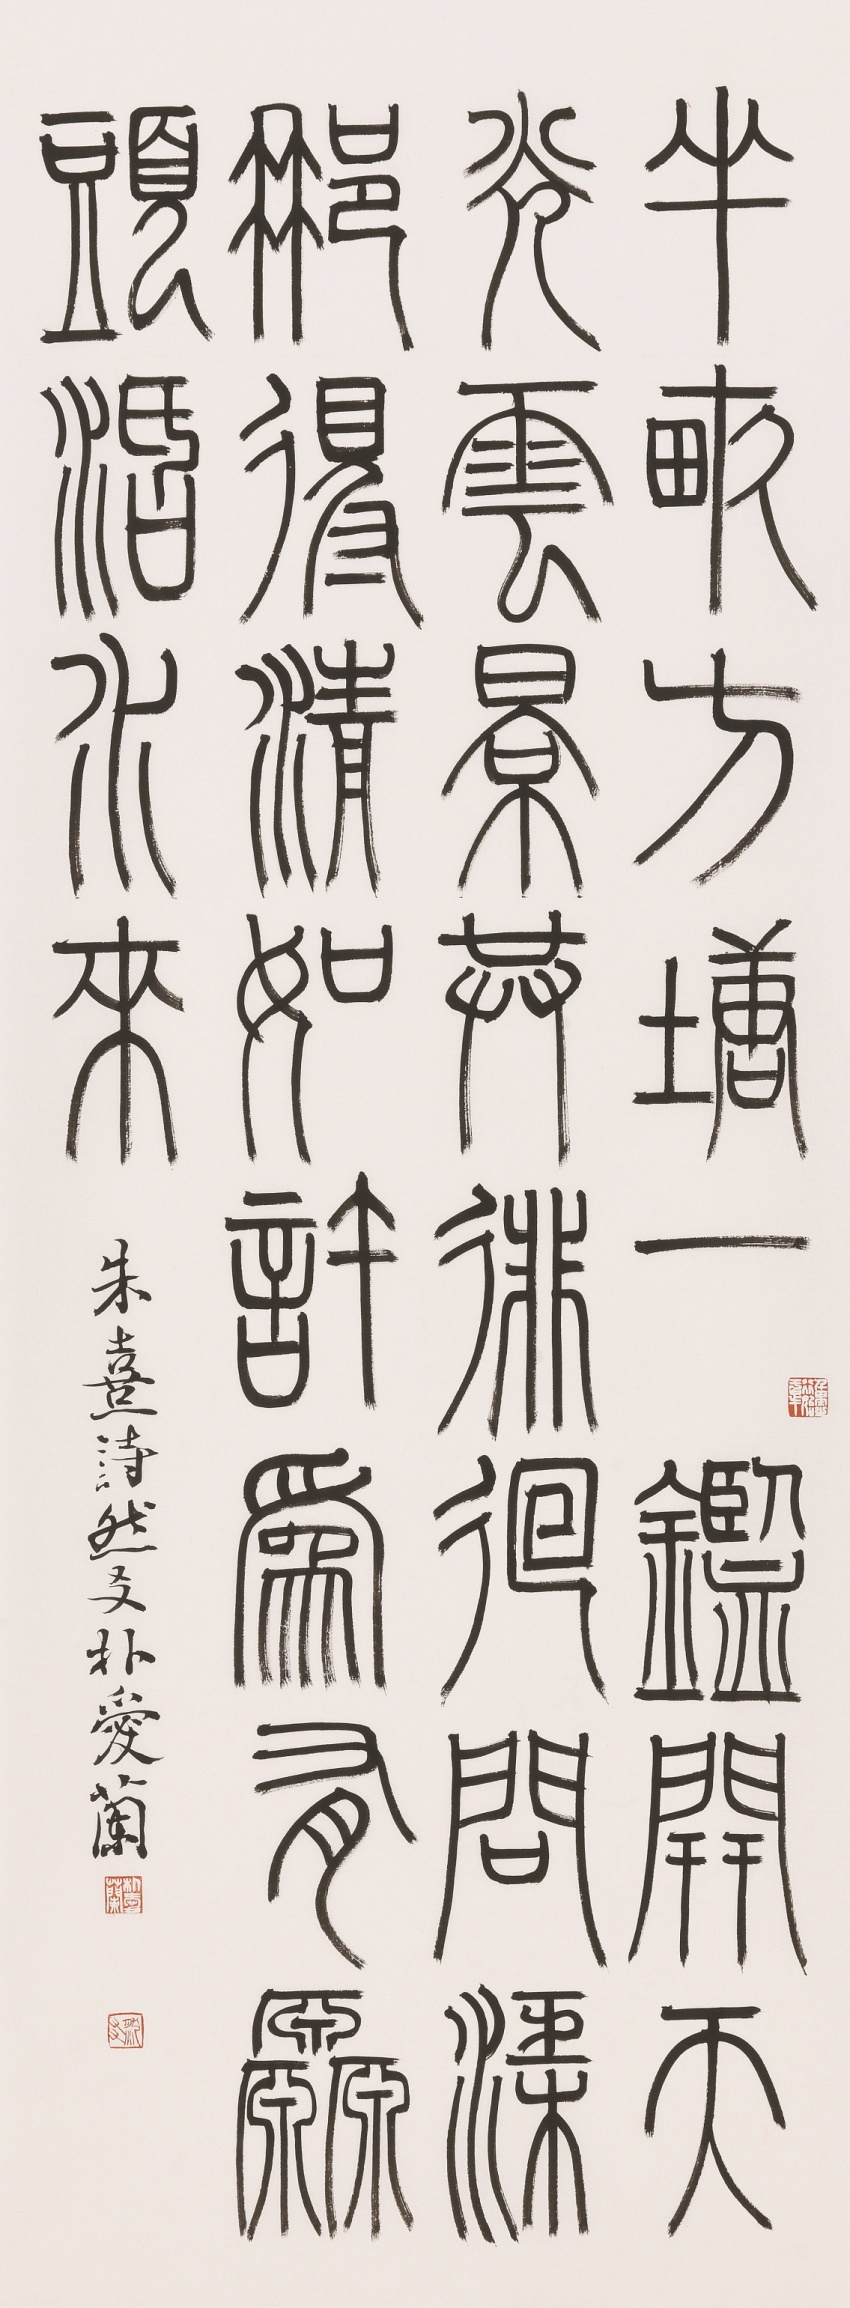 半畝方塘一鑑開天
光雲景共徘徊問渠
那得清如許爲有厵
頭活水來
朱熹詩然朴愛蘭
朴愛蘭